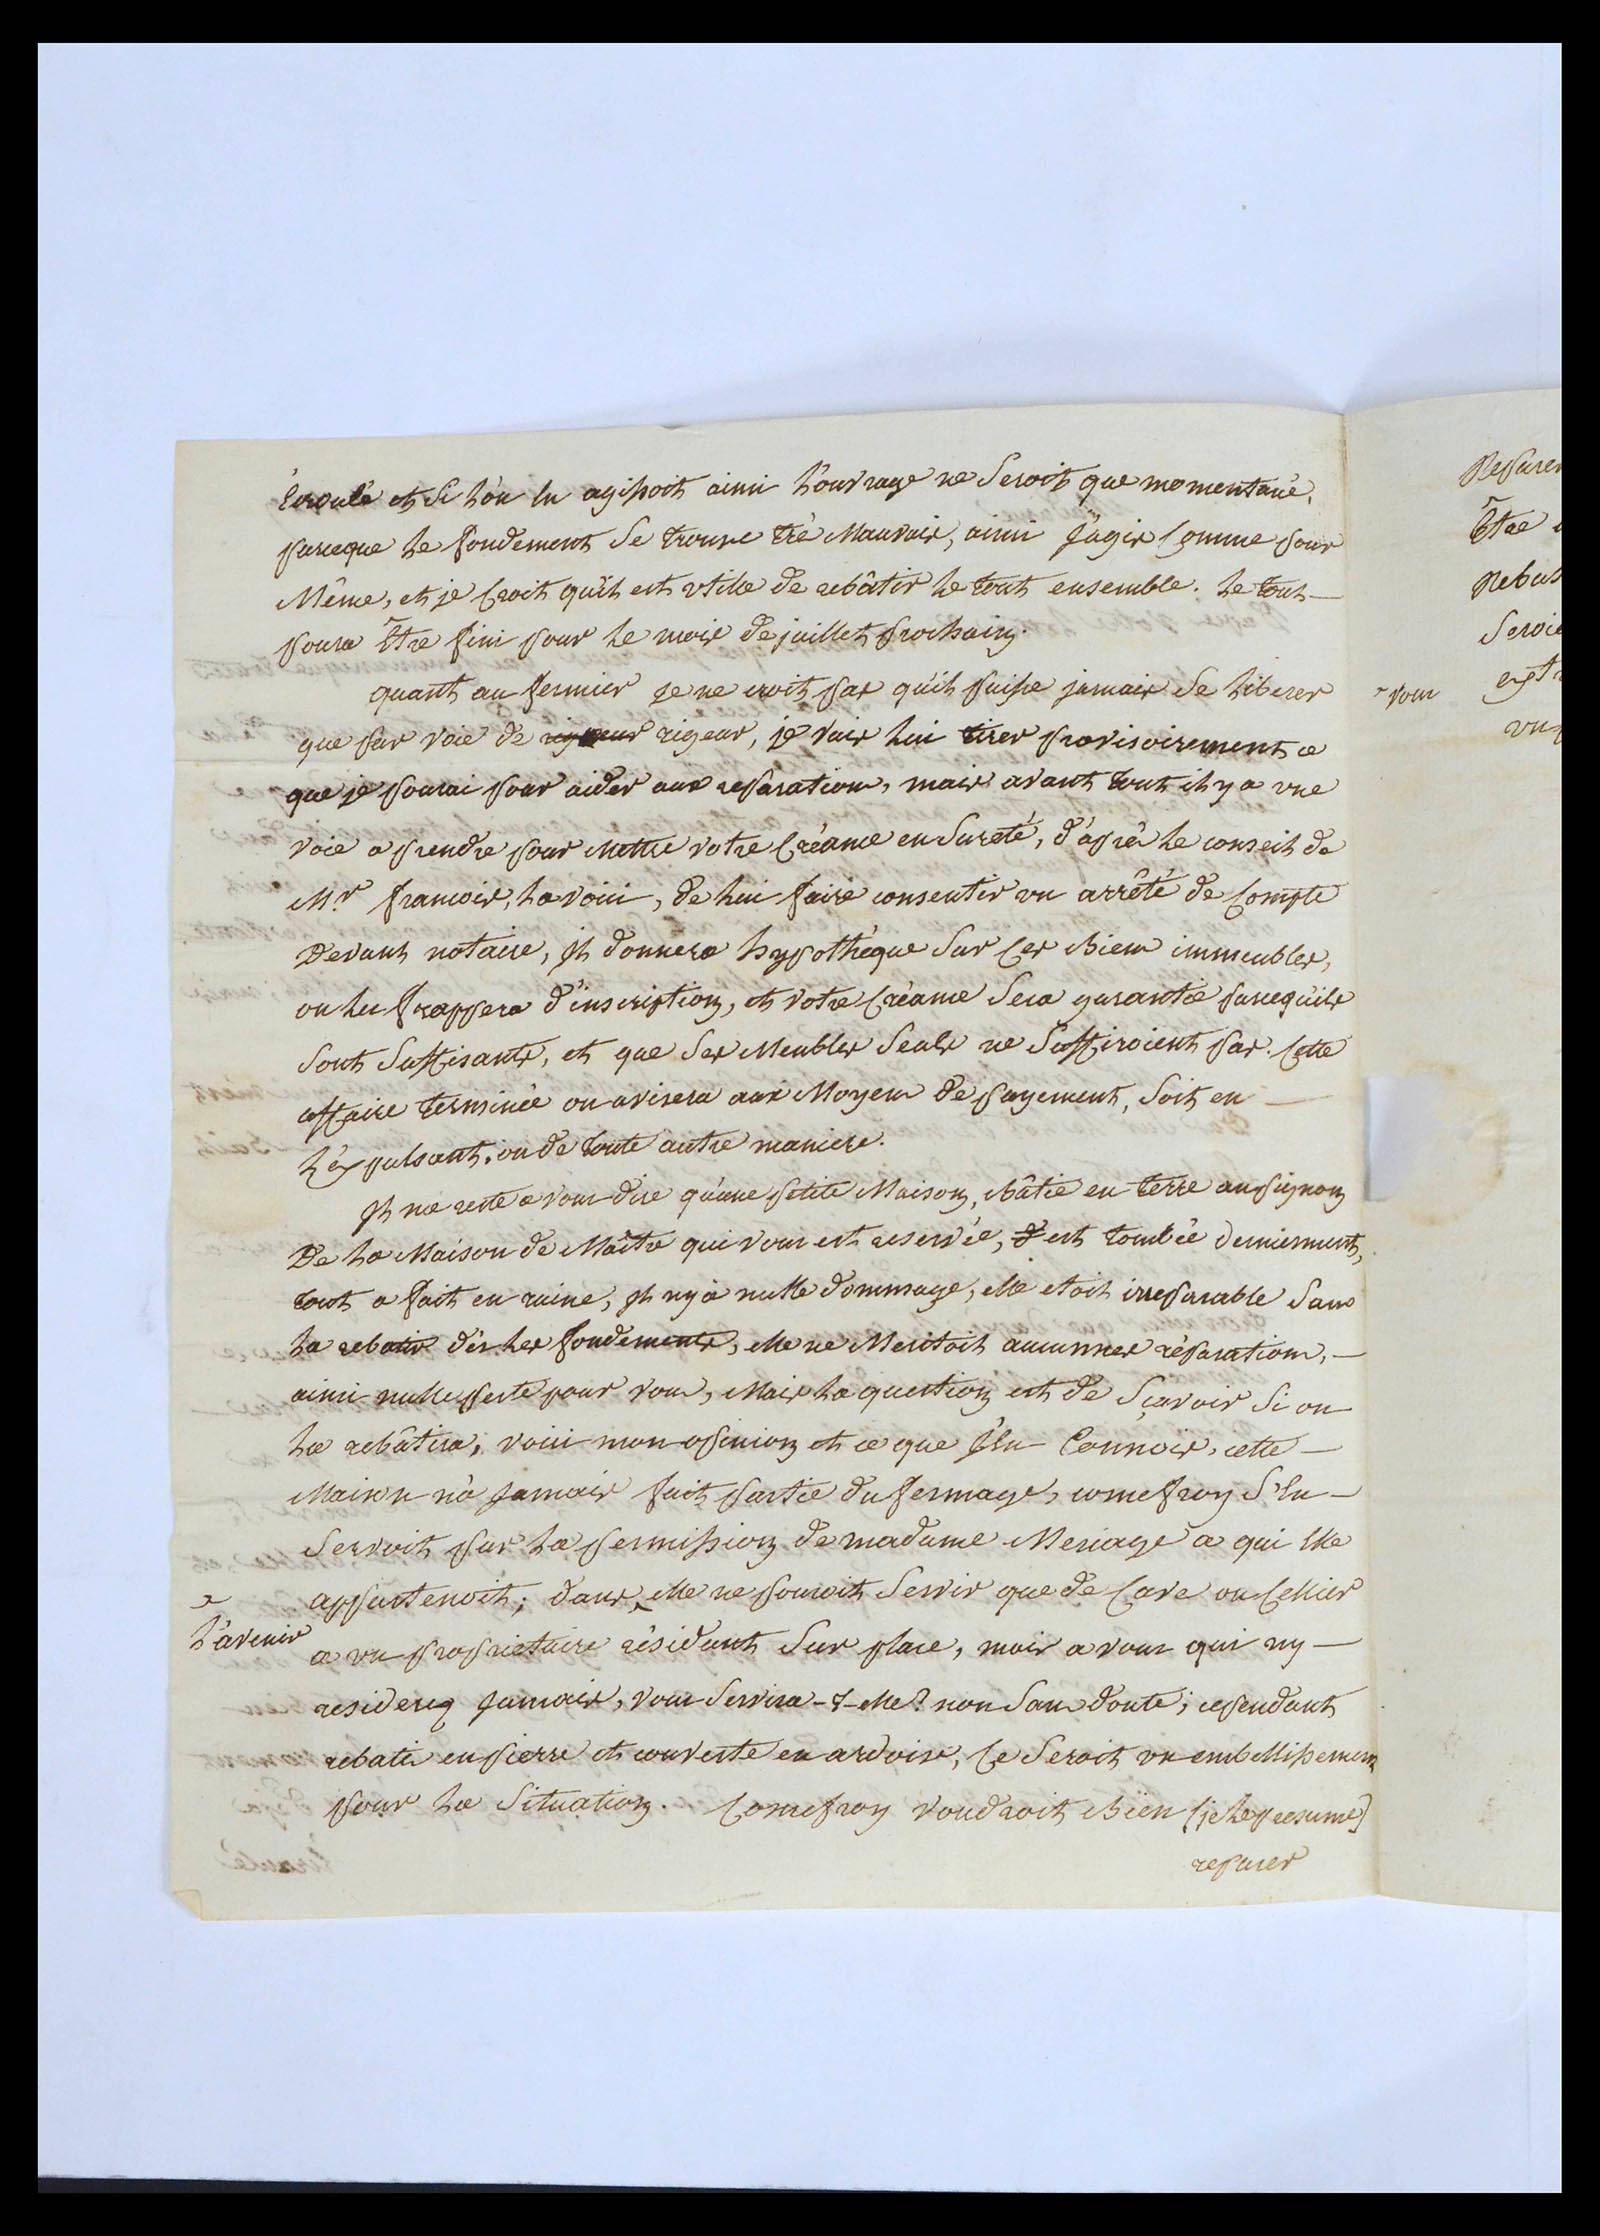 écroulé et si l'ón en agissoit ainsi l'ouvrage ne seroit que momentané,
parceque le fondement se trouve trè mauvais, ainsi j'agis comme pour
Même, et je croit qu'il est utille de rebâtir le tout ensemble. le tout
poura Être fini pour le mois de juillet prochain.
quant au fermier je ne croit pas qu'il puisse jamais se liberer
que par voie de rigueur rigeur, je vais lui tirer provisoirement ce
que je pourai pour aider aux reparations, mais avant tout il y a une
voie a prendre pour mettre votre Créance en sureté, d'après le conseil de
Mr. francois, la voici, de lui faire consentir un arrêté de Compte
Devant notaire, il donnera hypothèque sur ces Biens immeubles,
on les frappera d'inscription, et votre Créance sera garantie parcequ'ils
sont suffisants, et que ses Meubles seuls ne suffiroient pas. Cette
affaire terminée on avisera aux Moyens de payement, soit en
l'éxpulsant, ou de toute autre maniere.
Il me reste a vous dire qu'une petite Maison, bâtie en terre au pignon
De la Maison de Maître qui vous est reservée, est tombée dernierment,
tout a fait en ruine, il ny à nulle dommage, elle etoit irreparable sans
la rebatir dès les fondements, elle ne Meritoit aucunnes réparations,
ainsi nulle perte pour vous, Mais la question est de sçavoir si on
la rebâtira, voici mon opinion et ce que j'en Connois, cette
Maison n'a jamais fait partie du fermage, comefroy s'en
servoit par la permission de madame Meriage a qui elle
appartenoit; dans elle ne pouroit servir que de Cave ou Cellier
l'avenir
a un proprietaire résidant sur place, mais a vous qui ny
residerez jamais, vous servira-t-elle? non sans doute; cependant
rebatie en pierre et couverte en ardoise, ce seroit un embellissement
pour la situation. Comefroy voudroit bien (je le presume)
reparer
vous
Être